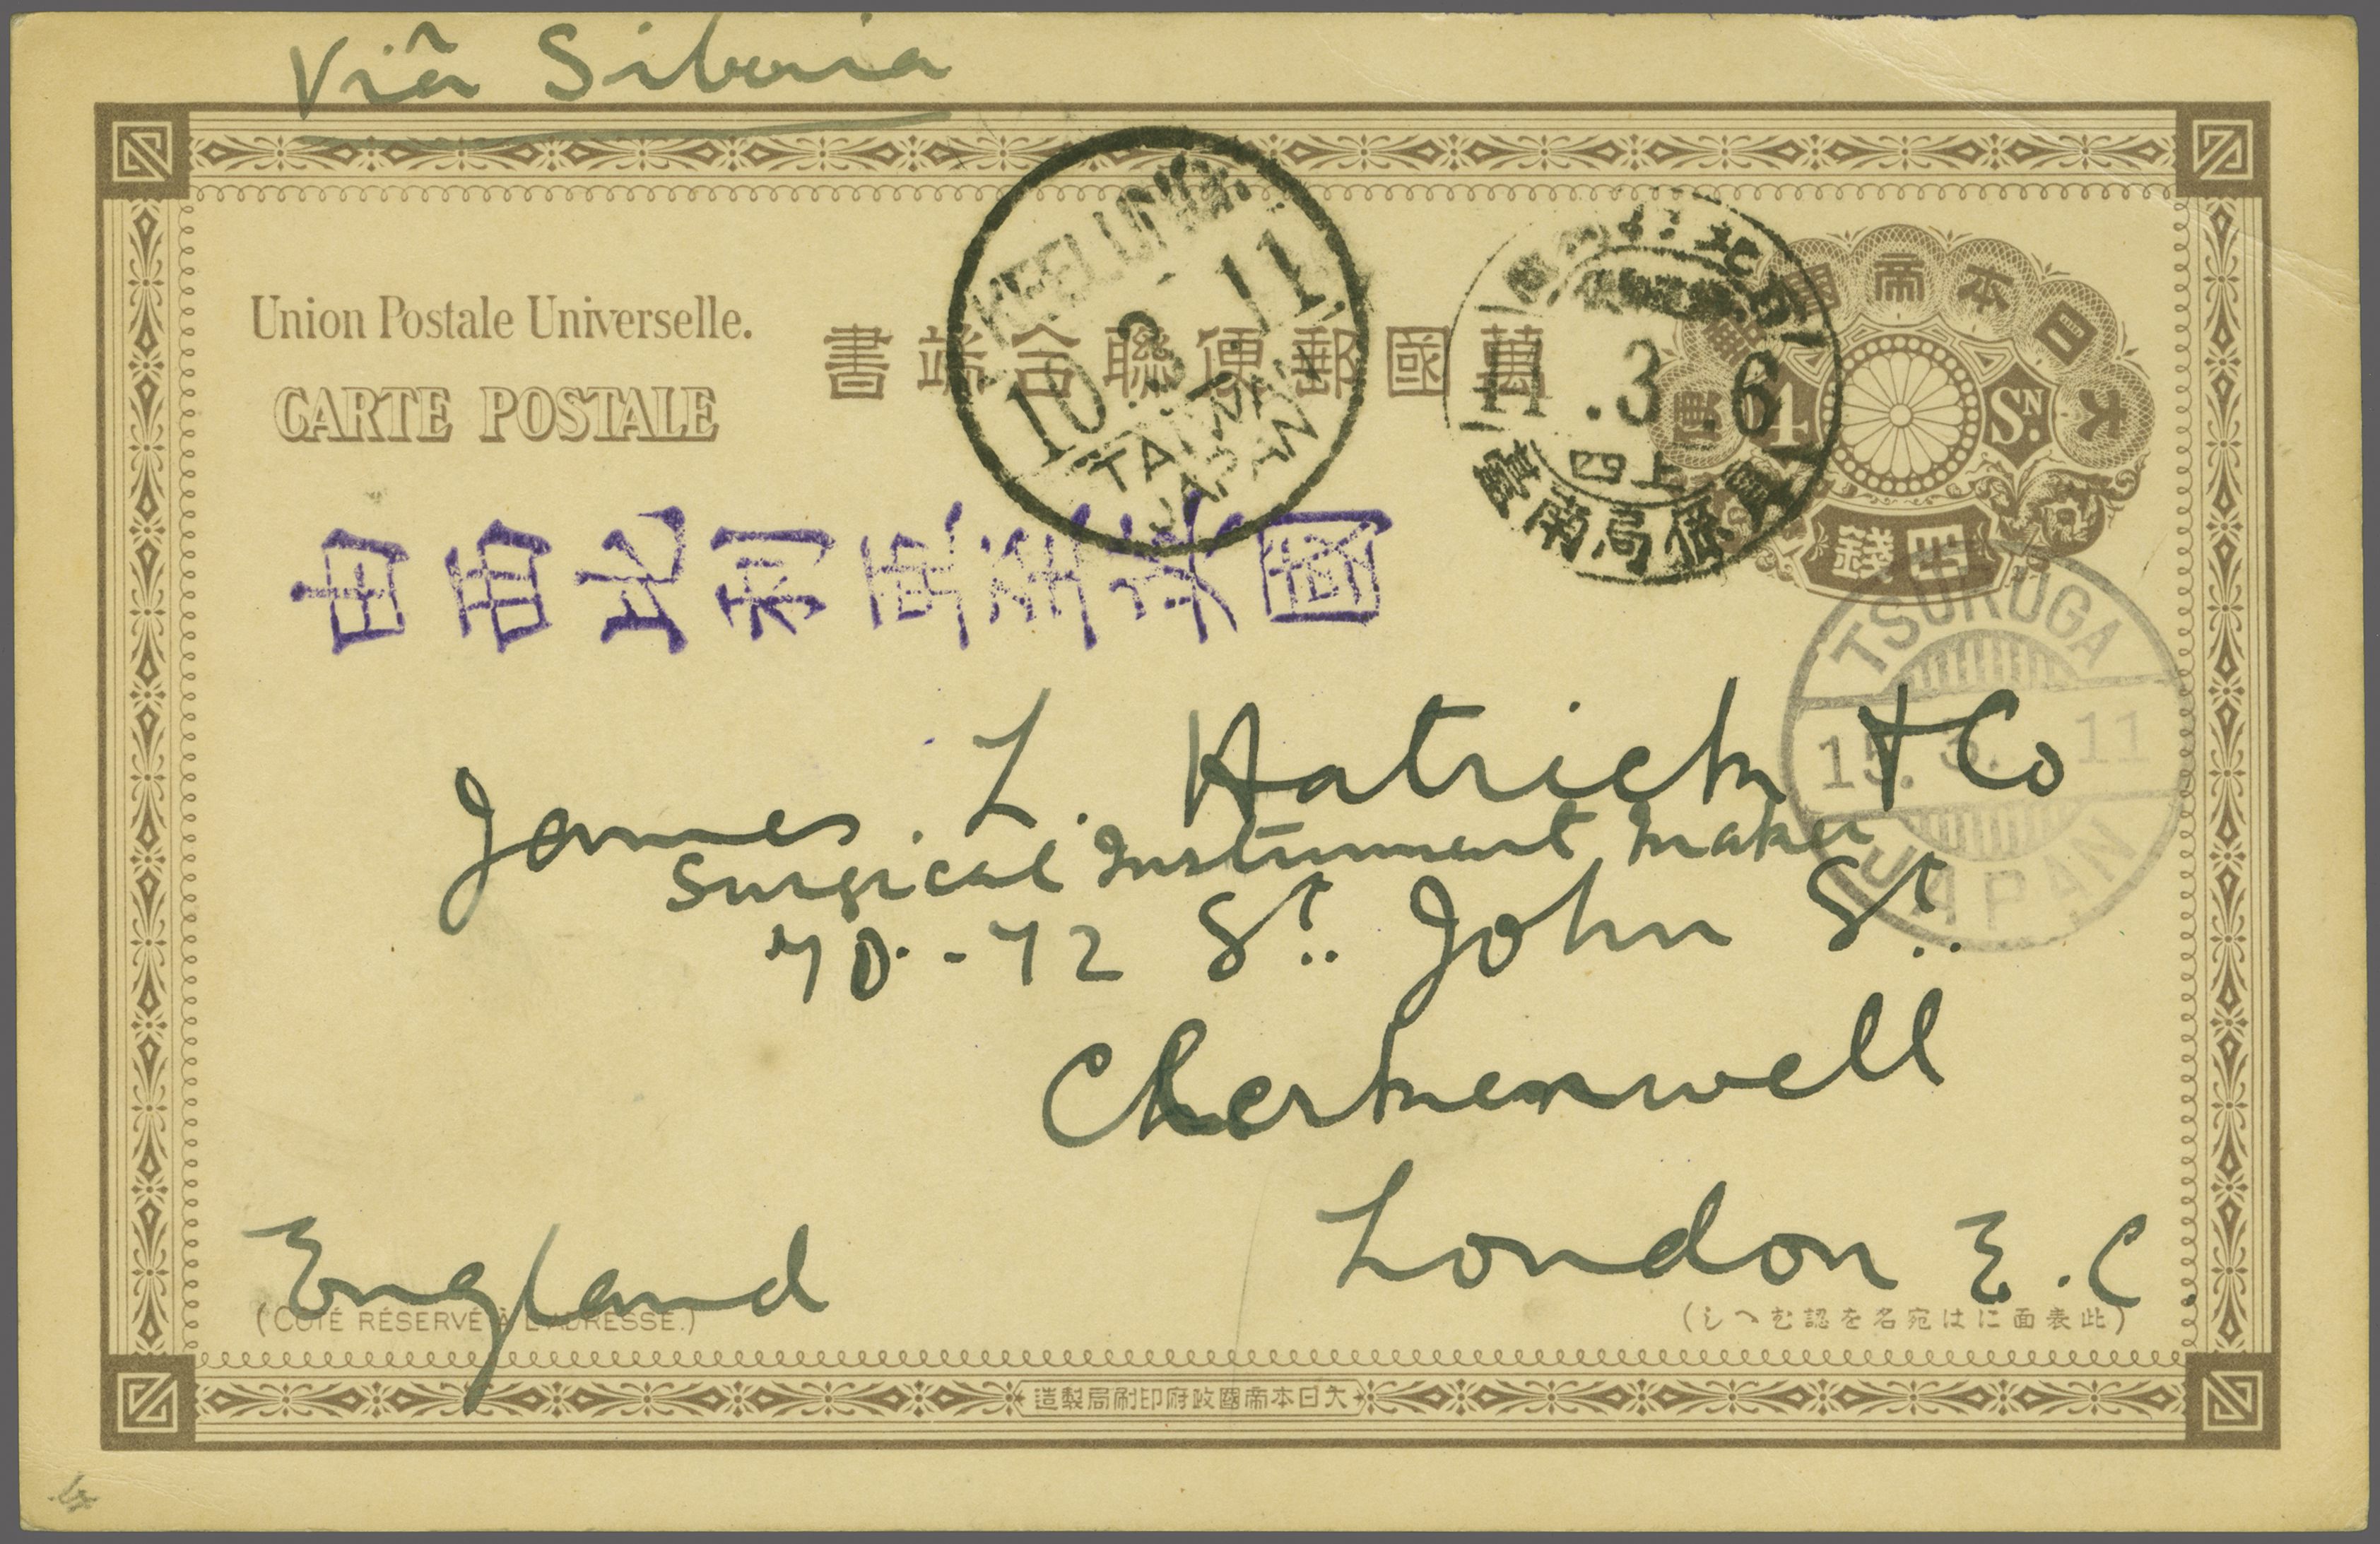 Viâ Siberia
Union Postale Universelle.
CARTE POSTALE
書端合聯便郵國萬
大日本帝國郵便
4 SN.
錢四
KEELUNG.
10 3 11
TAIWAN
JAPAN
11.3.6
四上
臺南局
TSURUGA
15. 3. 11
JAPAN
James. L. Hatrick & Co
Surgical Instrument Maker
70.-72 St. John St.
Clerkenwell
London E.C.
England
(COTÉ RÉSERVÉ À L'ADRESSE.)
(しへむ認を名宛はに面表此)
造製局刷印府政國帝本日大